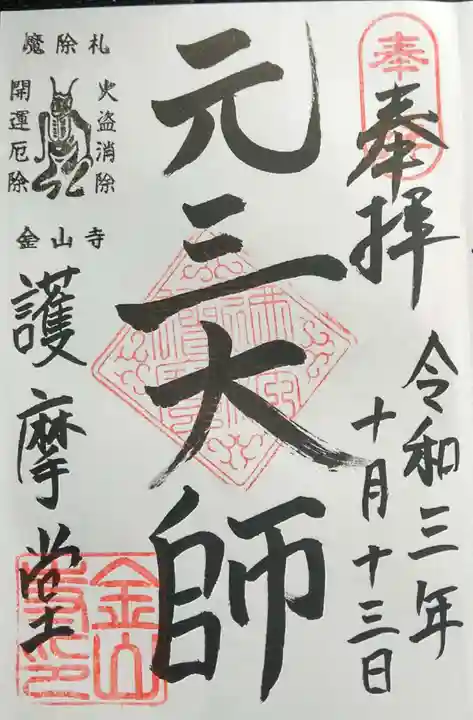 奉拝
令和三年
十月十三日
元三大師
魔除札
火盗消除
開運厄除
金山寺
護摩堂
金山
寺印